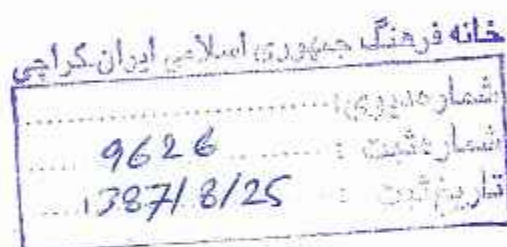 خانه فرهنگ جمهوری اسلامی ایران کراچی
شماره دیوی: ............
شماره ثبت : ... 9626 ...
تاریخ ثبت : 1387/8/25